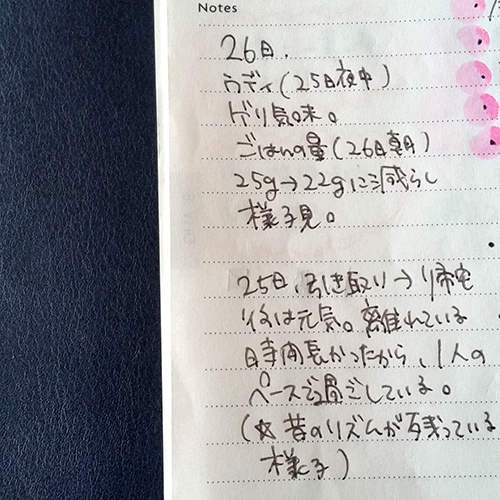 Notes
26日.
ウディ(25日夜中)
ゲリ気味。
ごはんの量(26日朝)
25g→22gに減らし
様子見。
25日、引き取り→帰宅
後は元気。離れている
時間長かったから、1人の
ペースで過ごしている。
(☆昔のリズムが残っている
様子)